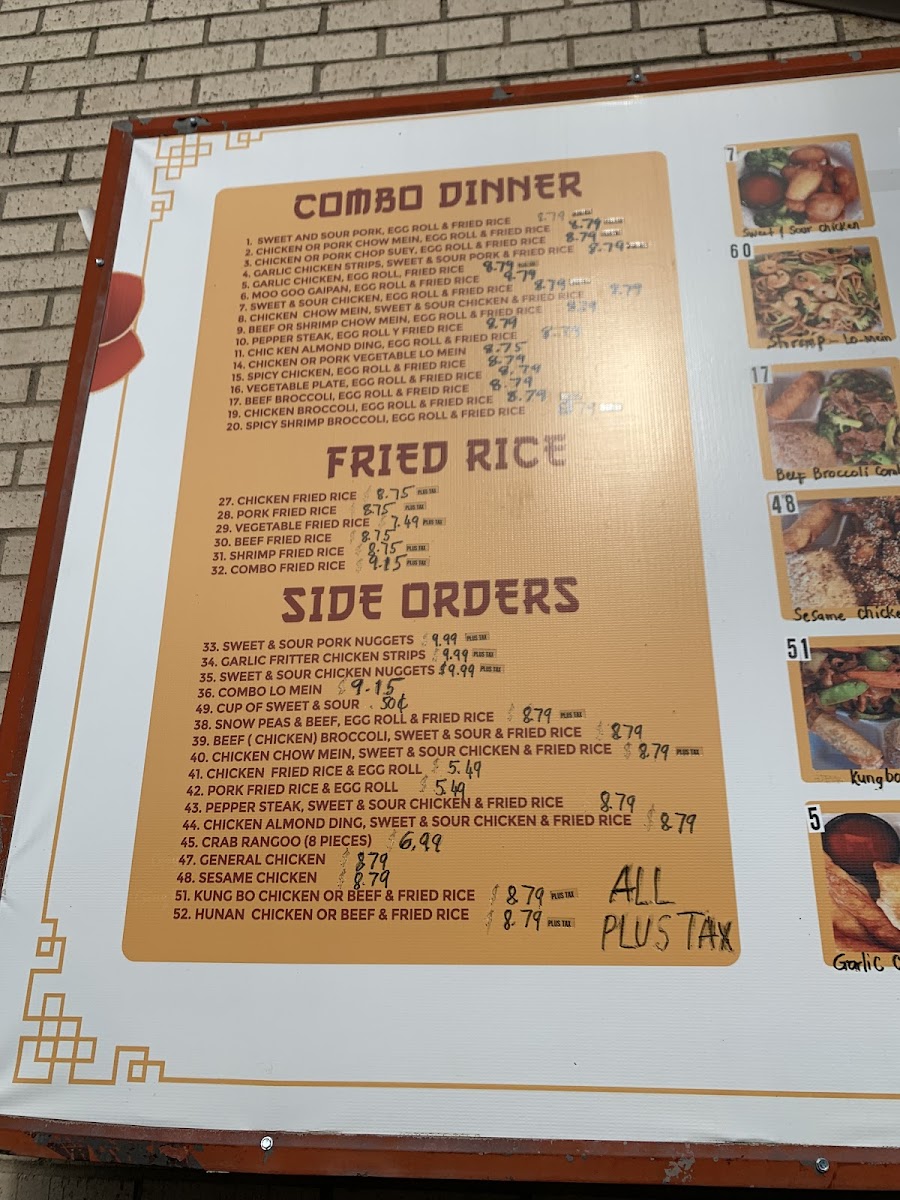 COMBO DINNER
1. SWEET AND SOUR PORK, EGG ROLL & FRIED RICE 8.79
2. CHICKEN OR PORK CHOW MEIN, EGG ROLL & FRIED RICE 8.79
3. CHICKEN OR PORK CHOP SUEY, EGG ROLL & FRIED RICE 8.79
4. GARLIC CHICKEN STRIPS, SWEET & SOUR PORK & FRIED RICE 8.79
5. GARLIC CHICKEN, EGG ROLL, FRIED RICE 8.79
6. MOO GOO GAIPAN, EGG ROLL & FRIED RICE 8.79
7. SWEET & SOUR CHICKEN, EGG ROLL & FRIED RICE 8.79
8. CHICKEN CHOW MEIN, SWEET & SOUR CHICKEN & FRIED RICE 8.79
9. BEEF OR SHRIMP CHOW MEIN, EGG ROLL & FRIED RICE 8.79
10. PEPPER STEAK, EGG ROLL Y FRIED RICE 8.79
11. CHIC KEN ALMOND DING, EGG ROLL & FRIED RICE 8.79
14. CHICKEN OR PORK VEGETABLE LO MEIN 8.75
15. SPICY CHICKEN, EGG ROLL & FRIED RICE 8.79
16. VEGETABLE PLATE, EGG ROLL & FRIED RICE 8.79
17. BEEF BROCCOLI, EGG ROLL & FREID RICE 8.79
19. CHICKEN BROCCOLI, EGG ROLL & FRIED RICE 8.79
20. SPICY SHRIMP BROCCOLI, EGG ROLL & FRIED RICE 8.79
FRIED RICE
27. CHICKEN FRIED RICE $ 8.75 PLUS TAX
28. PORK FRIED RICE $ 8.75 PLUS TAX
29. VEGETABLE FRIED RICE $ 7.49 PLUS TAX
30. BEEF FRIED RICE $ 8.75
31. SHRIMP FRIED RICE $ 8.75 PLUS TAX
32. COMBO FRIED RICE $ 9.15 PLUS TAX
SIDE ORDERS
33. SWEET & SOUR PORK NUGGETS $ 9.99 PLUS TAX
34. GARLIC FRITTER CHICKEN STRIPS $ 9.99 PLUS TAX
35. SWEET & SOUR CHICKEN NUGGETS $ 9.99 PLUS TAX
36. COMBO LO MEIN $ 9.15
49. CUP OF SWEET & SOUR .50¢
38. SNOW PEAS & BEEF, EGG ROLL & FRIED RICE $ 8.79 PLUS TAX
39. BEEF ( CHICKEN) BROCCOLI, SWEET & SOUR & FRIED RICE $ 8.79
40. CHICKEN CHOW MEIN, SWEET & SOUR CHICKEN & FRIED RICE $ 8.79 PLUS TAX
41. CHICKEN FRIED RICE & EGG ROLL $ 5.49
42. PORK FRIED RICE & EGG ROLL $ 5.49
43. PEPPER STEAK, SWEET & SOUR CHICKEN & FRIED RICE 8.79
44. CHICKEN ALMOND DING, SWEET & SOUR CHICKEN & FRIED RICE $ 8.79
45. CRAB RANGOO (8 PIECES) $ 6.99
47. GENERAL CHICKEN $ 8.79
48. SESAME CHICKEN $ 8.79
51. KUNG BO CHICKEN OR BEEF & FRIED RICE $ 8.79 PLUS TAX
52. HUNAN CHICKEN OR BEEF & FRIED RICE $ 8.79 PLUS TAX
ALL
PLUS TAX
7
Sweet & Sour Chicken
60
Shrimp - Lo mein
17
Beef Broccoli Comb
48
Sesame Chicke
51
Kung bo
5
Garlic C